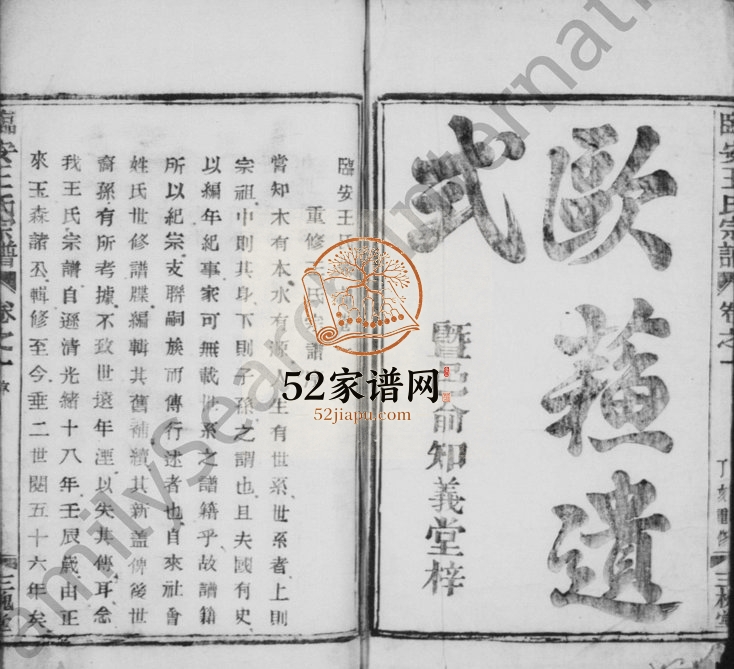 臨安王氏宗譜
卷之一
三槐堂
歐蘓遺
式
暨邑俞知義堂梓
臨安王氏
重修王氏宗譜
嘗知木有本水有源人生有世系世系者上則
宗祖中則其身下則子孫之謂也且夫國有史
以編年紀事家可無載世系之譜籍乎故譜籍
所以紀宗支聯嗣族而傳行述者也自來社會
姓氏世修譜牒編輯其舊補續其新盖俾後世
裔孫有所考據不致世遠年湮以失其傳耳念
我王氏宗譜自遜清光緒十八年壬辰歲由正
來玉森諸公輯修至今垂二世閱五十六年矣
臨安王氏宗譜
卷之一
序
三槐堂
52家谱网
52jiapu.com
amilySearch International